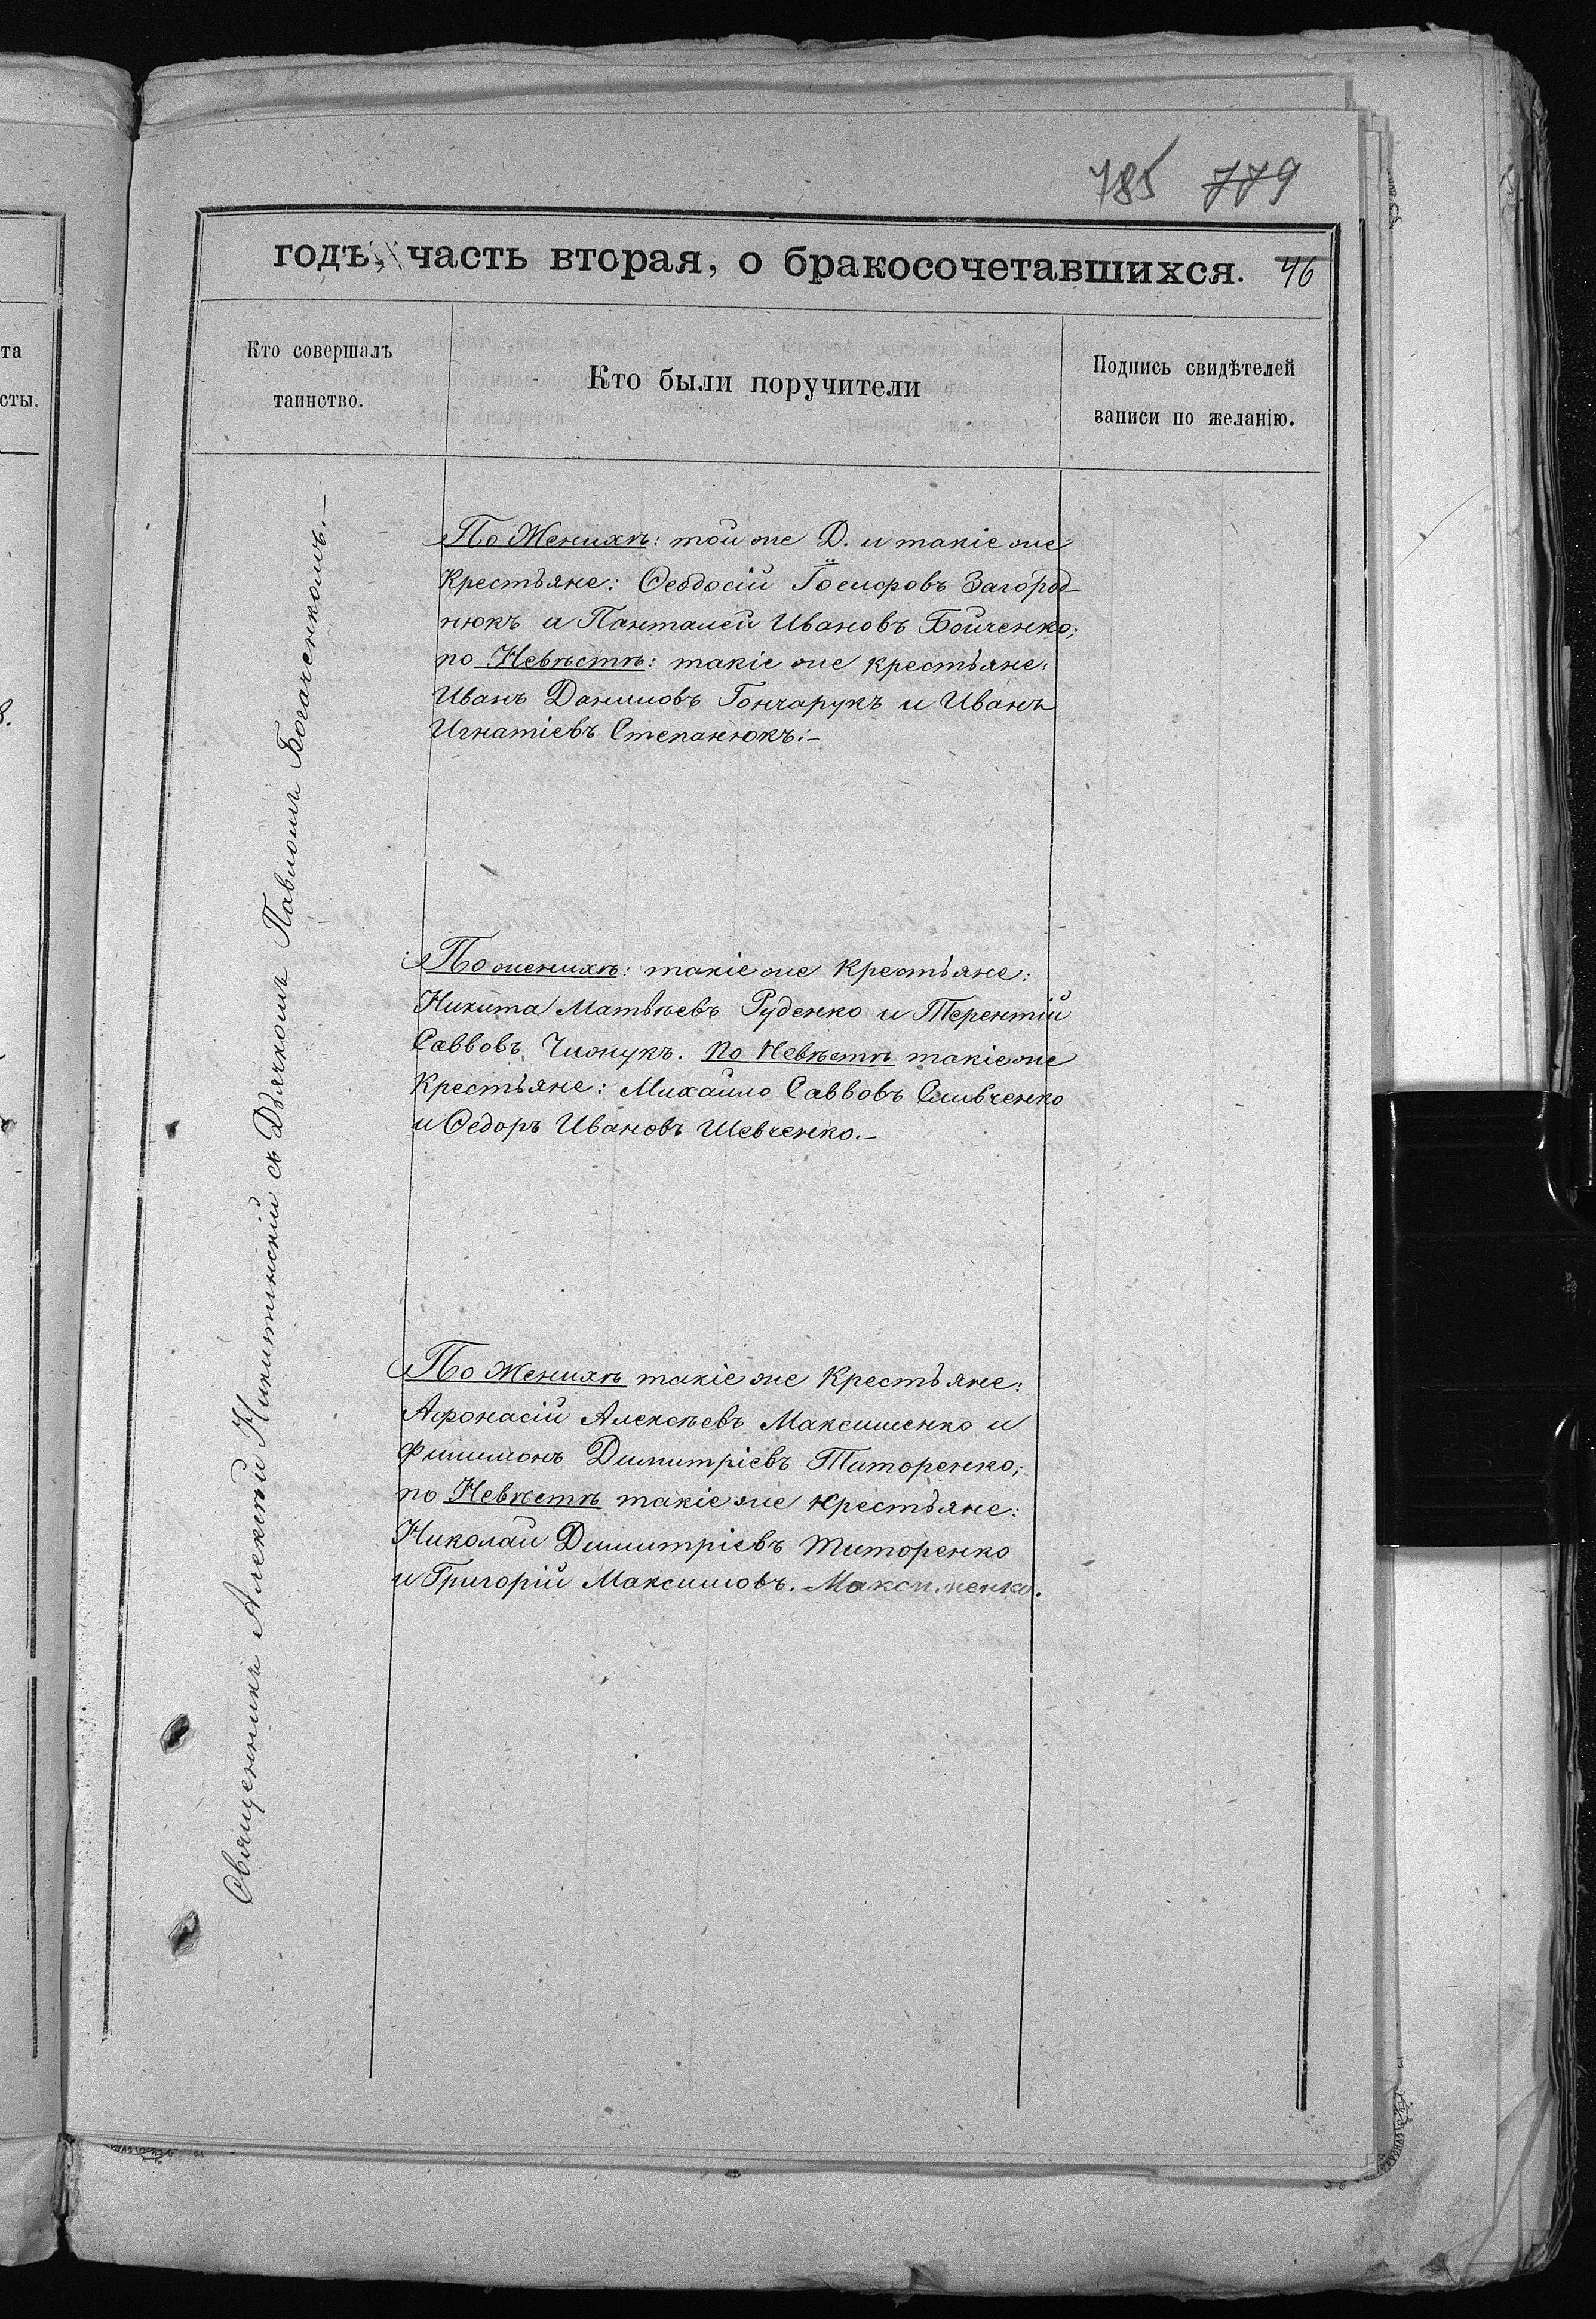 785 779
годъ, часть вторая, о бракосочетавшихся. 46
Кто совершалъ
таинство.
Кто были поручители
Подпись свидѣтелей
записи по желанію.
та
сты.
8.
Священникъ Алексѣй Никитинскій съ Дьячкомъ Павломъ Богаченкомъ.—
По Женихѣ: той же Д. и такіе же
Крестьяне: Ѳеодосій Іосифовъ Загород-
нюкъ и Панталей Ивановъ Бойченко;
по Невѣстѣ: такіе же крестьяне:
Иванъ Даниловъ Гончарукъ и Иванъ
Игнатіевъ Степанюкъ.—
По женихѣ: такіе же Крестьяне:
Никита Матвѣевъ Руденко и Терентій
Саввовъ Чижукъ. По Невѣстѣ такіе же
Крестьяне: Михайло Саввовъ Сливченко
и Ѳедоръ Ивановъ Шевченко.—
По Женихѣ такіе же Крестьяне:
Афонасій Алексѣевъ Максименко и
Филимонъ Димитріевъ Титоренко;
по Невѣстѣ такіе же крестьяне:
Николай Димитріевъ Титоренко
и Григорій Максимовъ. Максименко.